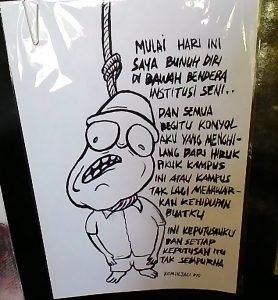 MULAI HARI INI
SAYA BUNUH DIRI
DI BAWAH BENDERA
INSTITUSI SENI..
DAN SEMUA
BEGITU KONYOL
AKU YANG MENGHI-
LANG DARI HIRUK
PIKUK KAMPUS
INI ATAU KAMPUS
TAK LAGI MENAWAR-
KAN KEHIDUPAN
BUATKU
INI KEPUTUSANKU
DAN SETIAP
KEPUTUSAN ITU
TAK SEMPURNA